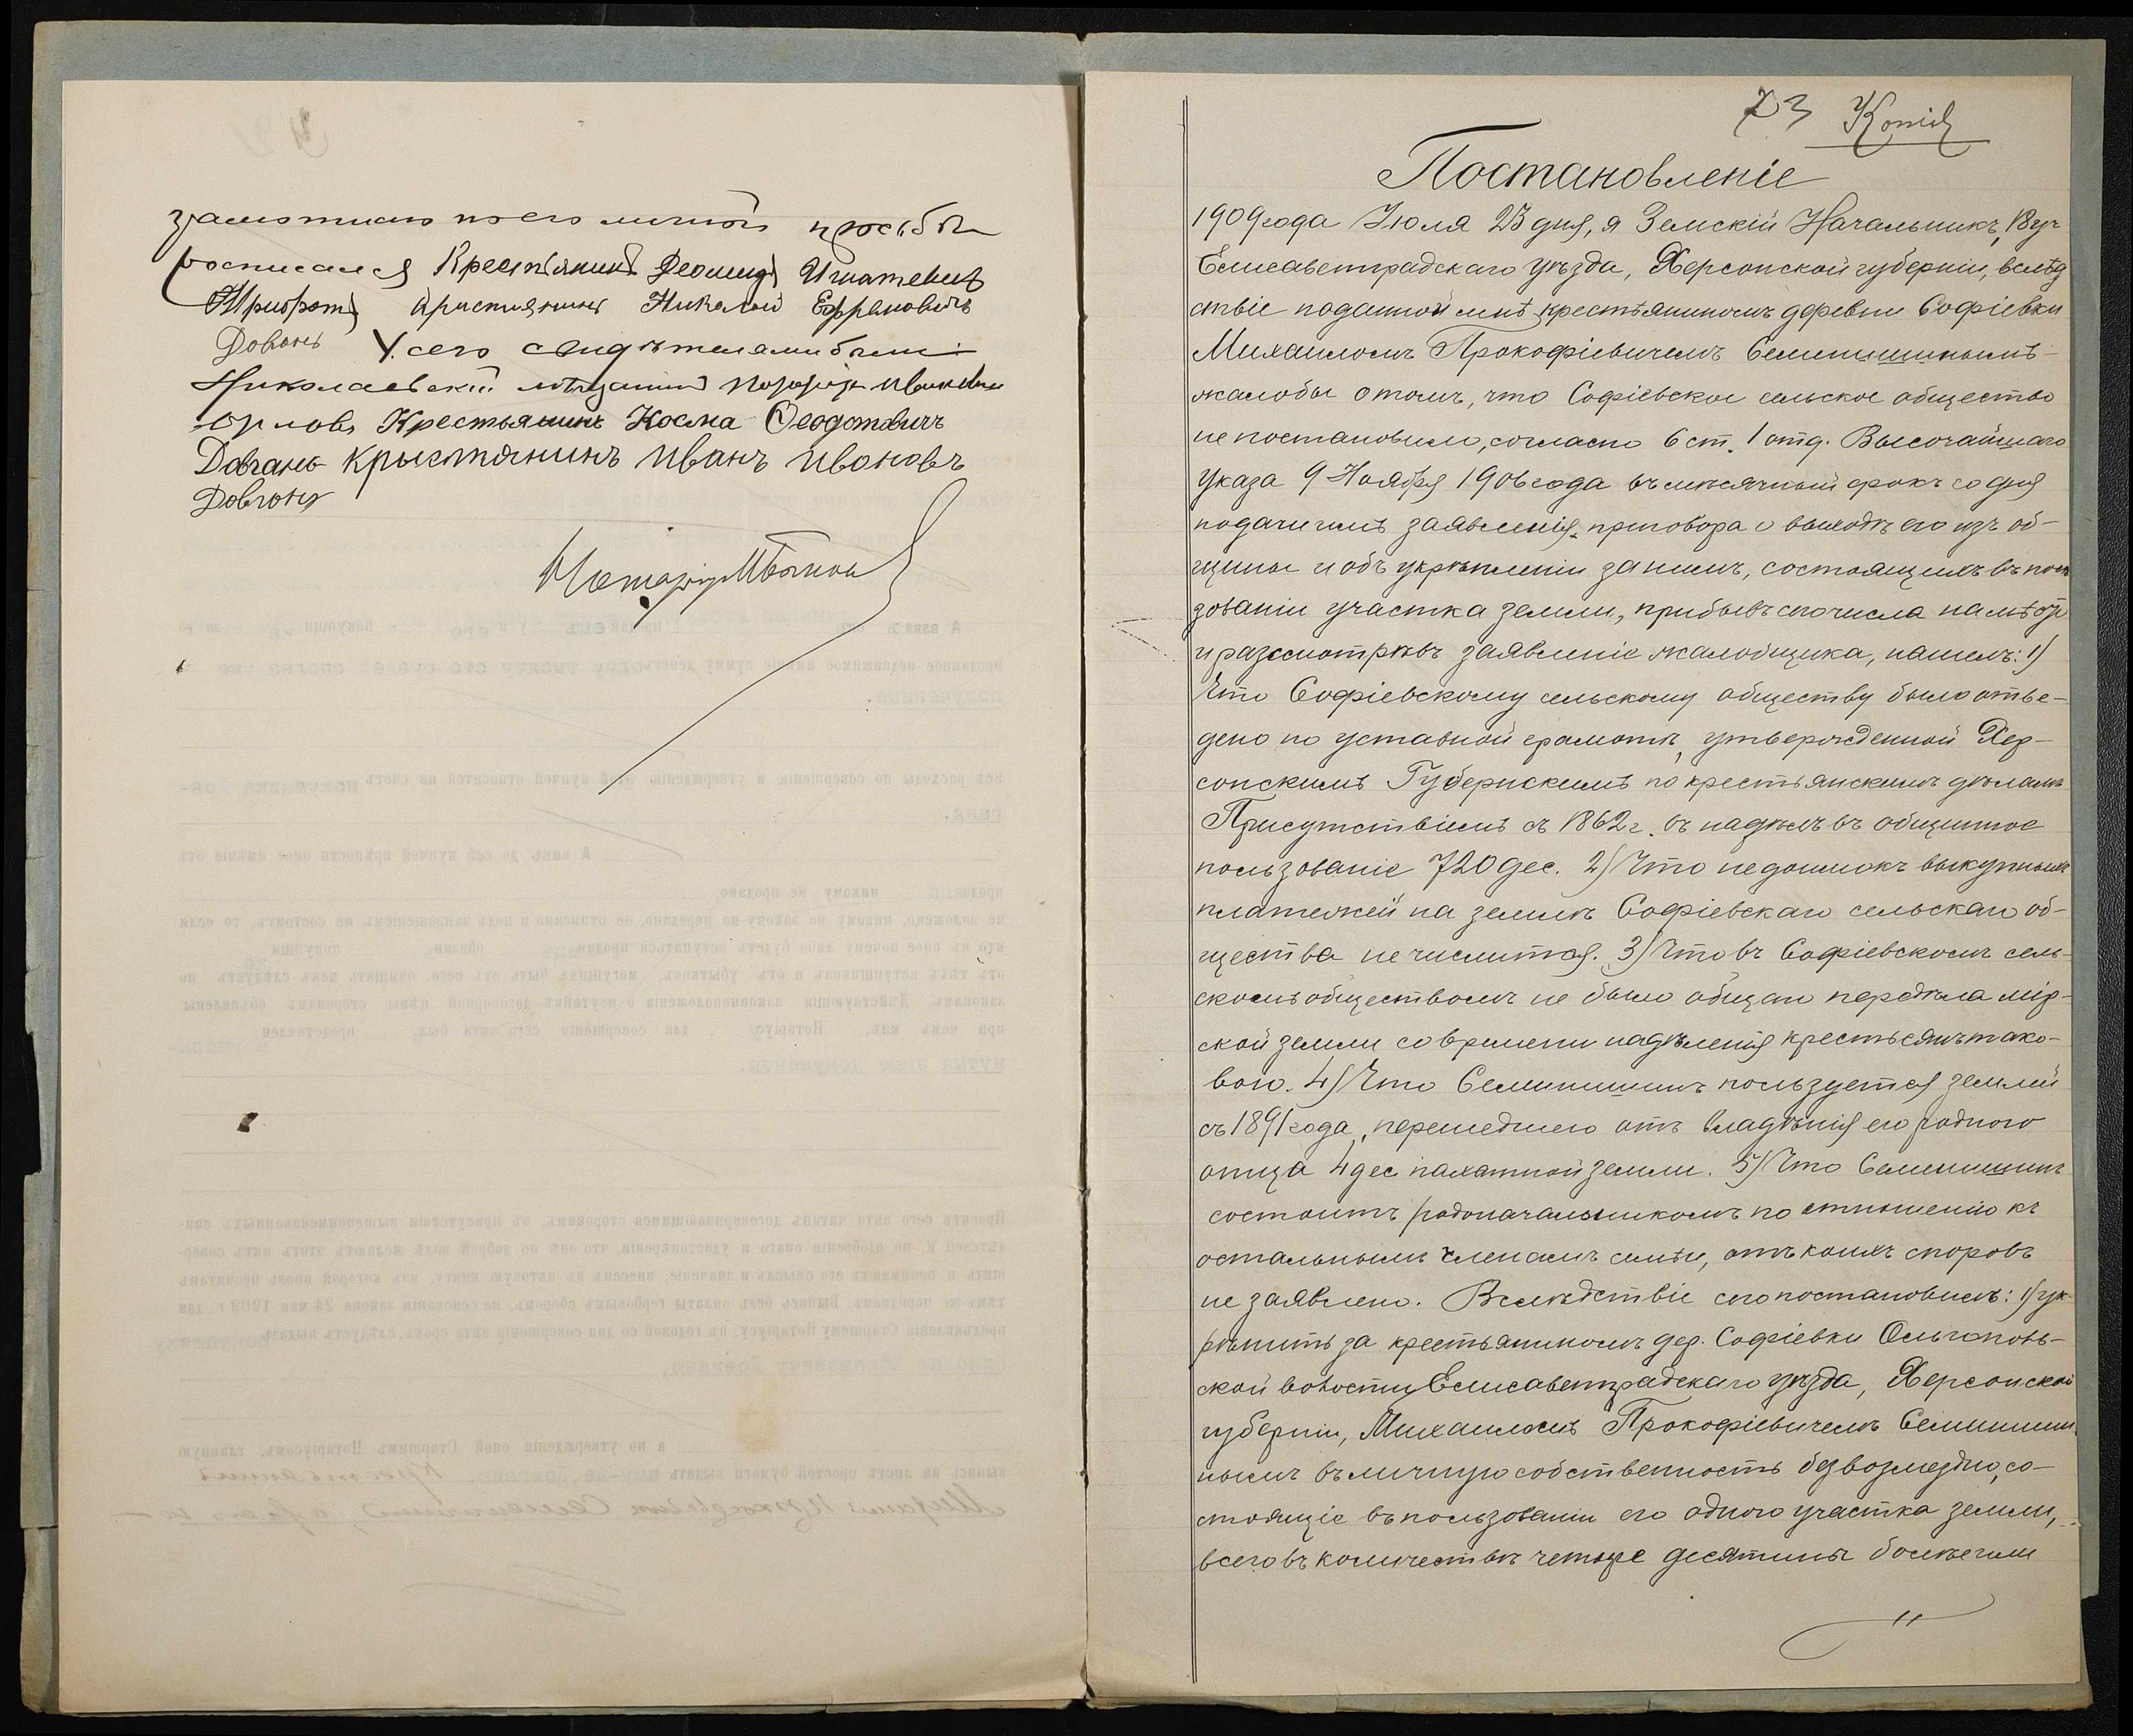 грамотного по его личной просьбѣ
росписался Крестьянинъ Деомидъ Игнатевичъ
Християнинъ Николай Ефремовичъ
Довгонь У сего свидѣтелями были:
Николаевскій мѣщанинъ Иванович
Орловъ Крестьянинъ Косма Феодотовичъ
Давгань Крыстянинъ Иванъ Ивановъ
Довгонь
Нотаріусъ
23 Копія
Постановленіе
1909 года Іюля 23 дня, я Земскій Начальникъ, 13 уч
Елисаветградскаго уѣзда, Херсонской губерніи, вслѣд
ствіе поданной мнѣ крестьяниномъ деревни Софіевки
Михаиломъ Прокофіевичемъ Семенишинымъ-
жалобы о томъ, что Софіевское сельское общество
не постановило, согласно 6 ст. 1 отд. Высочайшаго
Указа 9 Ноября 1906 года въ мѣсячный срокъ со дня
подачи имъ заявленія, приговора о выходѣ его изъ об-
щины и объ укрѣпленіи за нимъ, состоящихъ въ поль
зованіи участка земли, прибывъ сего числа на мѣсто
и разсмотрѣвъ заявленіе жалобщика, нашелъ: 1)
Что Софіевскому сельскому обществу было отве-
дено по уставной грамотѣ, утвержденной Хер-
сонскимъ Губернскимъ по крестьянскимъ дѣламъ
Присутствіемъ въ 1862 г. въ надѣлъ въ общинное
пользованіе 720 дес. 2) Что недоимокъ выкупныхъ
платежей на землѣ Софіевскаго сельскаго об-
щества не числится. 3) Что въ Софіевскомъ сель-
скомъ обществомъ не было общаго передѣла мір-
ской земли со времени надѣленія крестьянъ тако-
вою. 4) Что Семенишинъ пользуется землей
съ 1891 года, перешедшею отъ владѣнія его родного
отца 4 дес. пахатной земли. 5) Что Семенишинъ
состоитъ родоначальникомъ по отношенію къ
остальнымъ членамъ семьи, отъ коихъ споровъ
не заявлено. Вслѣдствіе сего постановилъ: 1) ук
рѣпить за крестьяниномъ дер. Софіевки Ольгополь-
ской волости Елисаветградскаго уѣзда, Херсонской
губерніи, Михаиломъ Прокофіевичемъ Семениши
нымъ въ личную собственность безвозмездно, со-
стоящіе въ пользованіи его одного участка земли,
всего въ количествѣ четыре десятины болѣе или